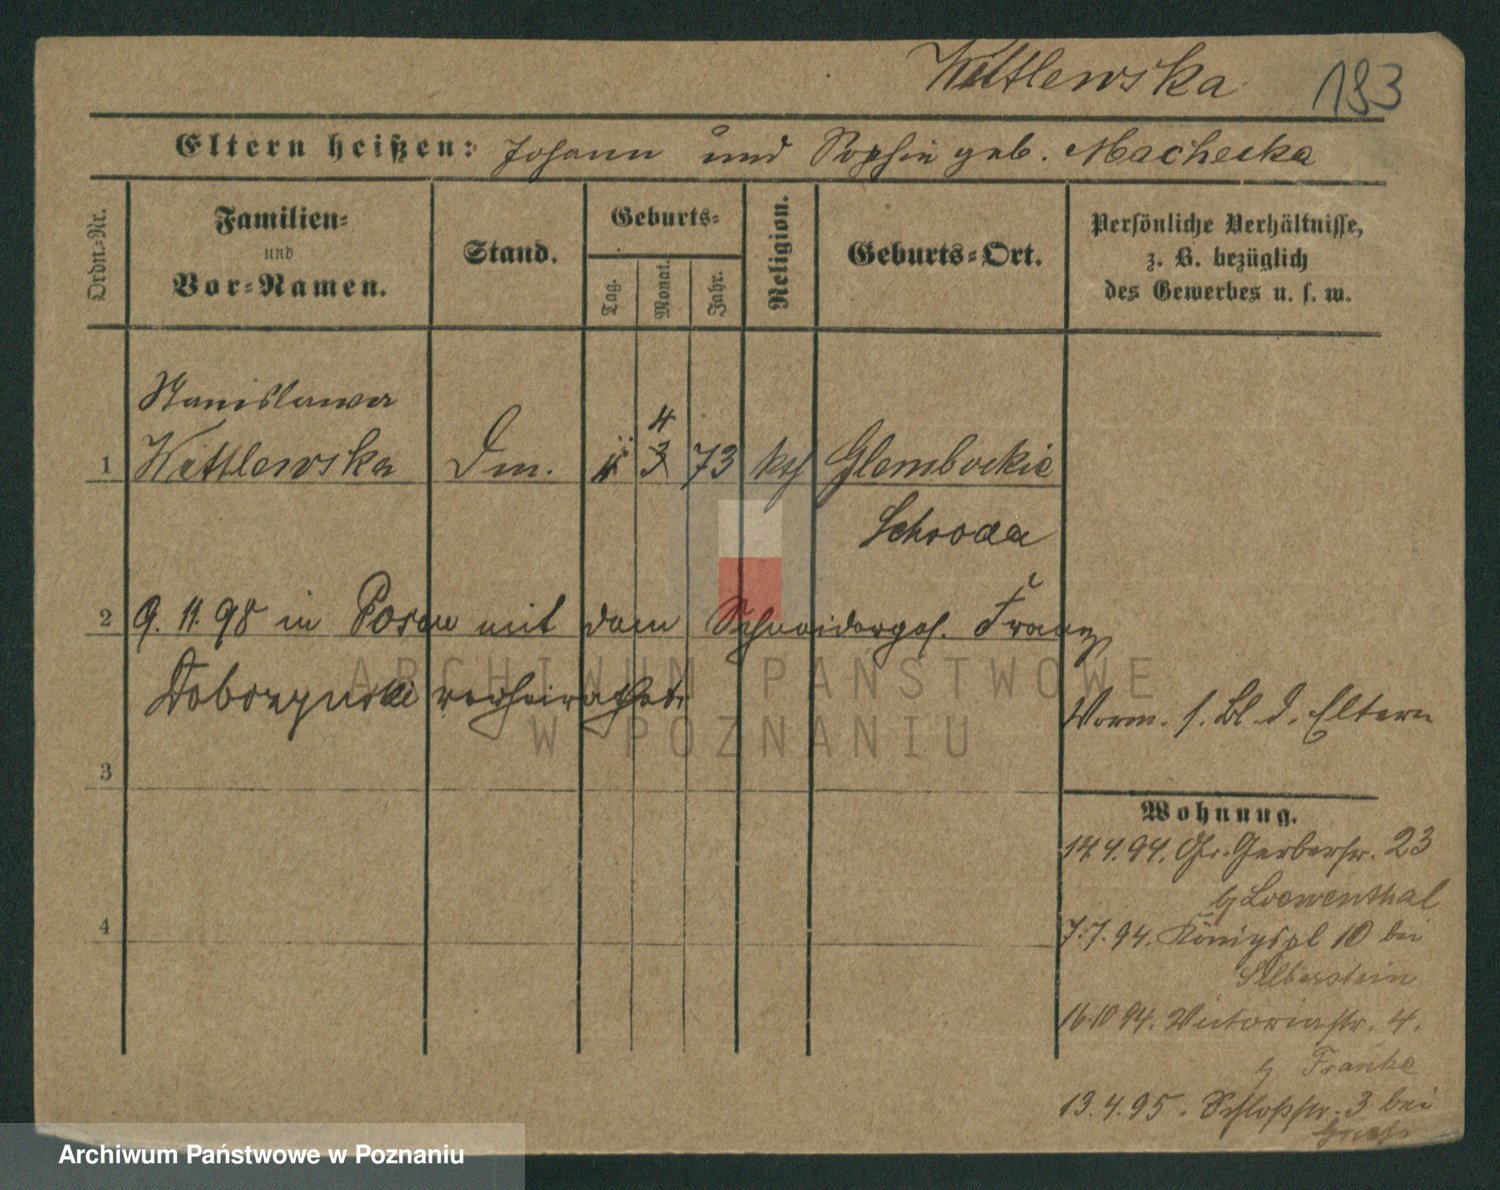 Wittlewska 183
Eltern heißen: Johann und Sophie geb. Macheska
Ordn.-Nr.
Familien-
und
Vor-Namen.
Stand.
Geburts-
Tag.
Monat.
Jahr.
Religion.
Geburts-Ort.
Persönliche Verhältnisse,
z. B. bezüglich
des Gewerbes u. s. w.
Stanislawa 4
1 Wittlewska Dm. 3 73 kth Glembockie
Schroda
2 9. 11. 98 in Posen mit dem Schneiderges. Franz
Dobrzynski verheirathet.
Vorm. s. Bl. d. Eltern
3
Wohnung.
14.4.94. Gr. Gerberstr. 23
b/ Loewenthal
7.7.94. Königspl 10 bei
Silberstein
4
16.10.94. Victoriastr. 4.
b/ Franke
13.4.95. Schloßstr. 3 bei
ARCHIWUM PAŃSTWOWE
W POZNANIU
Archiwum Państwowe w Poznaniu